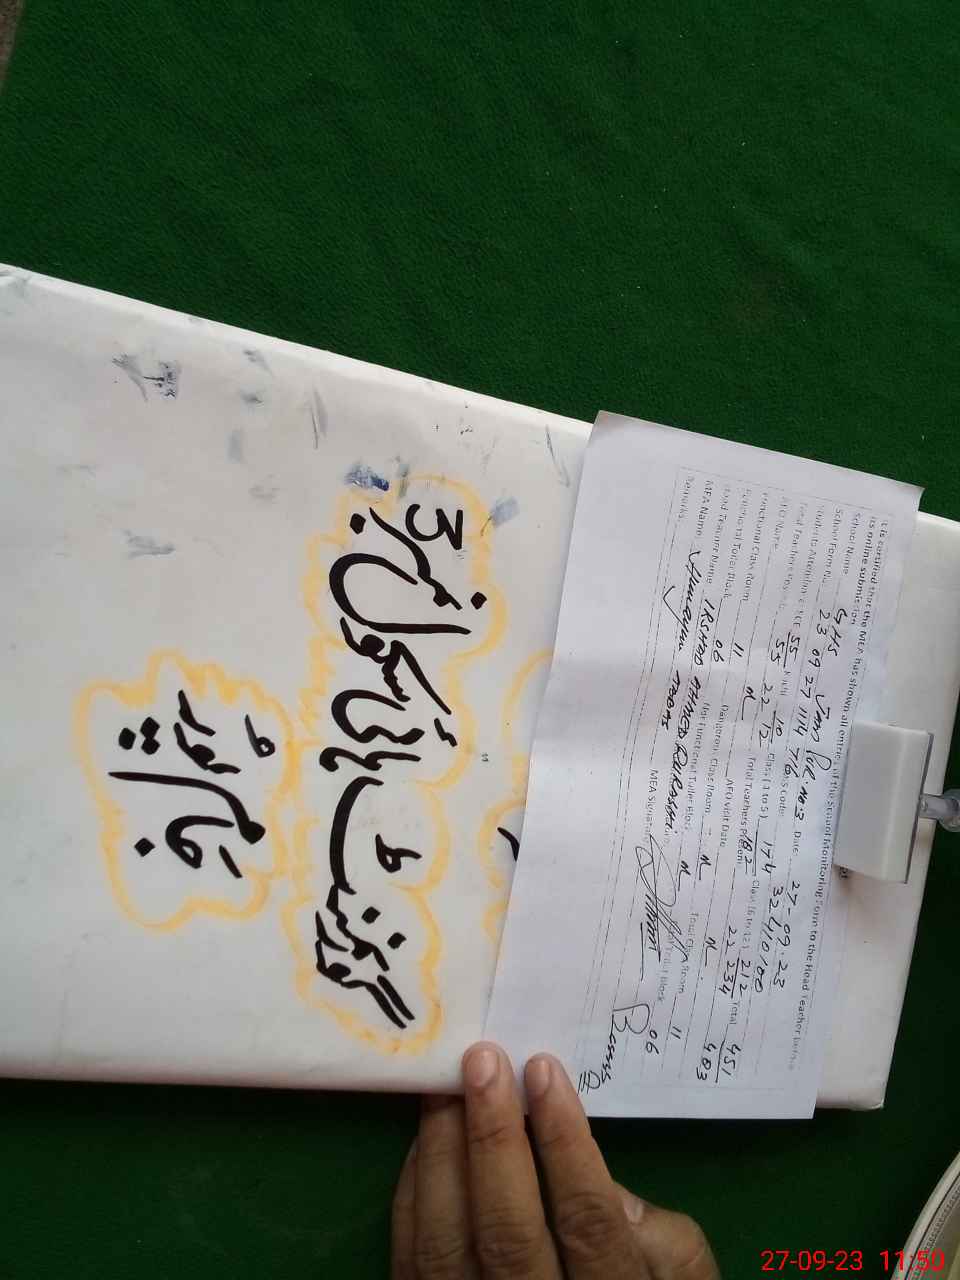 گورنمنٹ ہائی سکول نمبر 3
جام پور
It is certified that the MEA has shown all entries of the School Monitoring Form to the Head Teacher before
its online submission
School Name GHS Jam Pur. No. 3 Date 27-09-23
School Form No. 23 09 27 1114 716 ss code: 32410100
Students Attendance ECE 55 Katchi 10 Class (1 to 5) 174 Class (6 to 12) 212 Total 451
55 12 182 234 483
Total Teachers Posted 22 Total Teachers Present 22
AEO Name N AEO Visit Date N
Functional Class Room 11 Dangerous Class Room N Total Class Room 11
Functional Toilet Block 06 Non Functional Toilet Block N Total Toilet Block 06
Head Teacher Name IRSHAD AHMED QURAISHI
MEA Name Humayun MEA Signature
Remarks:
27-09-23 11:50